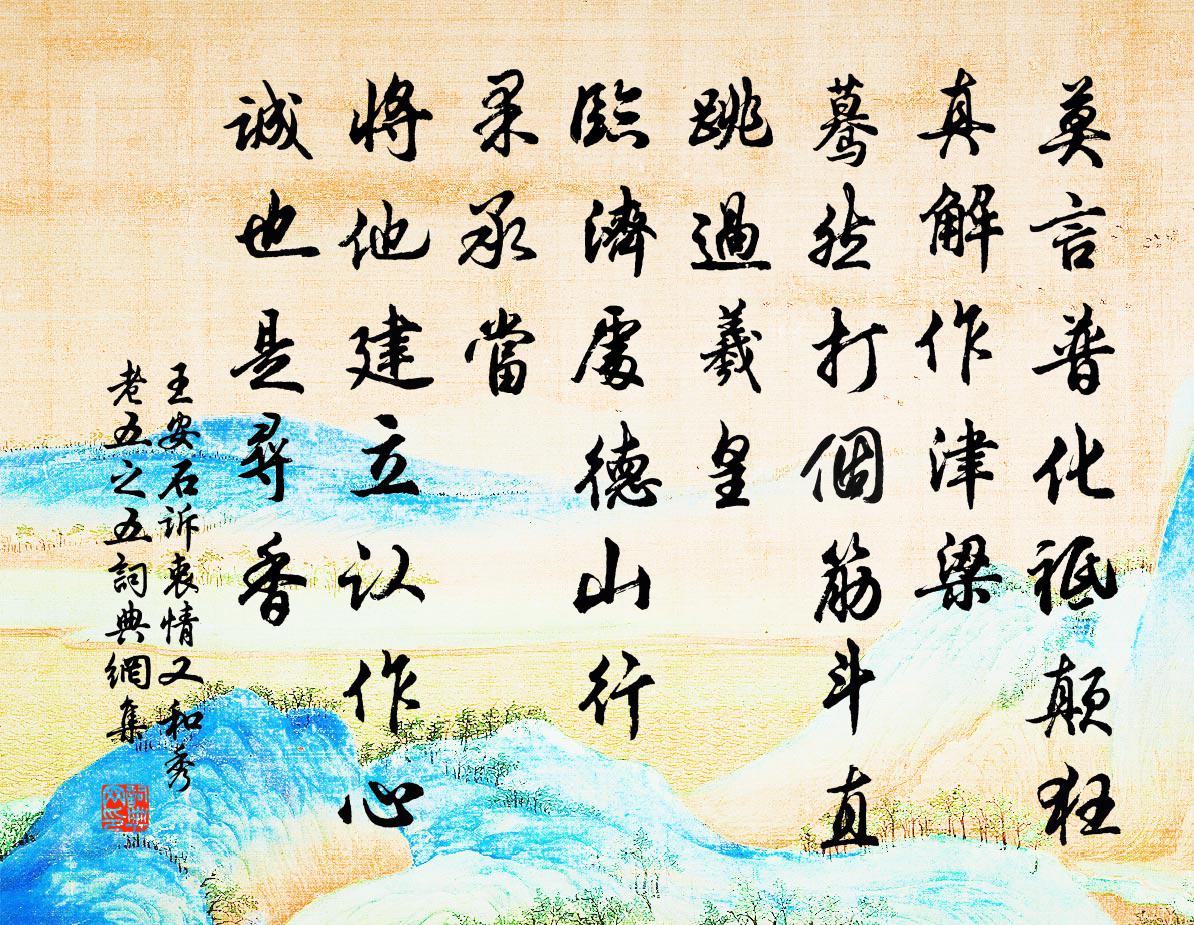 莫言普化祗颠狂
真解作津梁
蓦然打個筋斗直
跳過羲皇
臨濟處德山行
果承當
將他建立认作心
誠也是尋香
王安石诉衷情又和秀
老五之五詞典網集